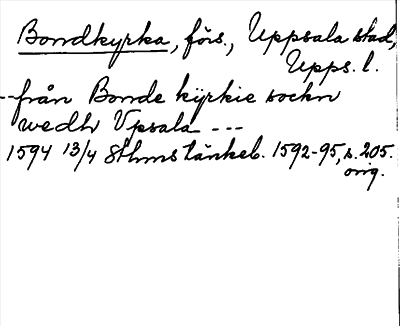 Bondkyrka, förs., Uppsala stad,
Upps. l.
--från Bonde kyrkie sockn
wedh Vpsala ---
1594 13/4 Sthms tänkeb. 1592-95, s. 205.
orig.